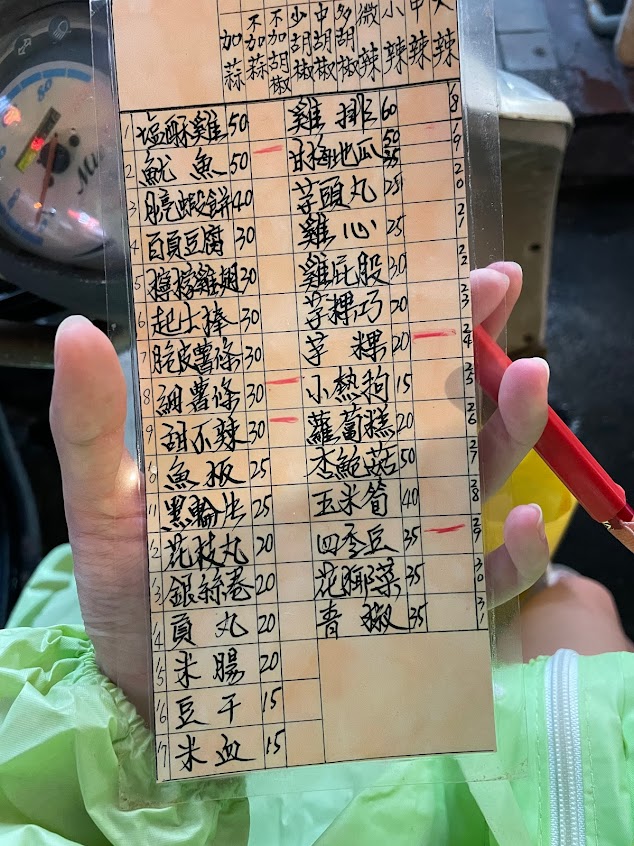 加蒜
不加蒜
不加胡椒
少胡椒
中胡椒
多胡椒
微辣
小辣
中辣
大辣
1 塩酥雞 50
2 魷魚 50
3 月亮蝦餅 40
4 百頁豆腐 30
5 檸檬雞翅 30
6 起士棒 30
7 脆皮薯條 30
8 細薯條 30
9 甜不辣 30
10 魚板 25
11 黑輪片 25
12 花枝丸 20
13 銀絲卷 20
14 貢丸 20
15 米腸 20
16 豆干 15
17 米血 15
雞排 60 18
甘梅地瓜 50 35 19
芋頭丸 25 20
雞心 25 21
雞屁股 30 22
芋粿巧 20 23
芋粿 20 24
小熱狗 15 25
蘿蔔糕 20 26
杏鮑菇 50 27
玉米筍 40 28
四季豆 35 29
花椰菜 35 30
青椒 35 31